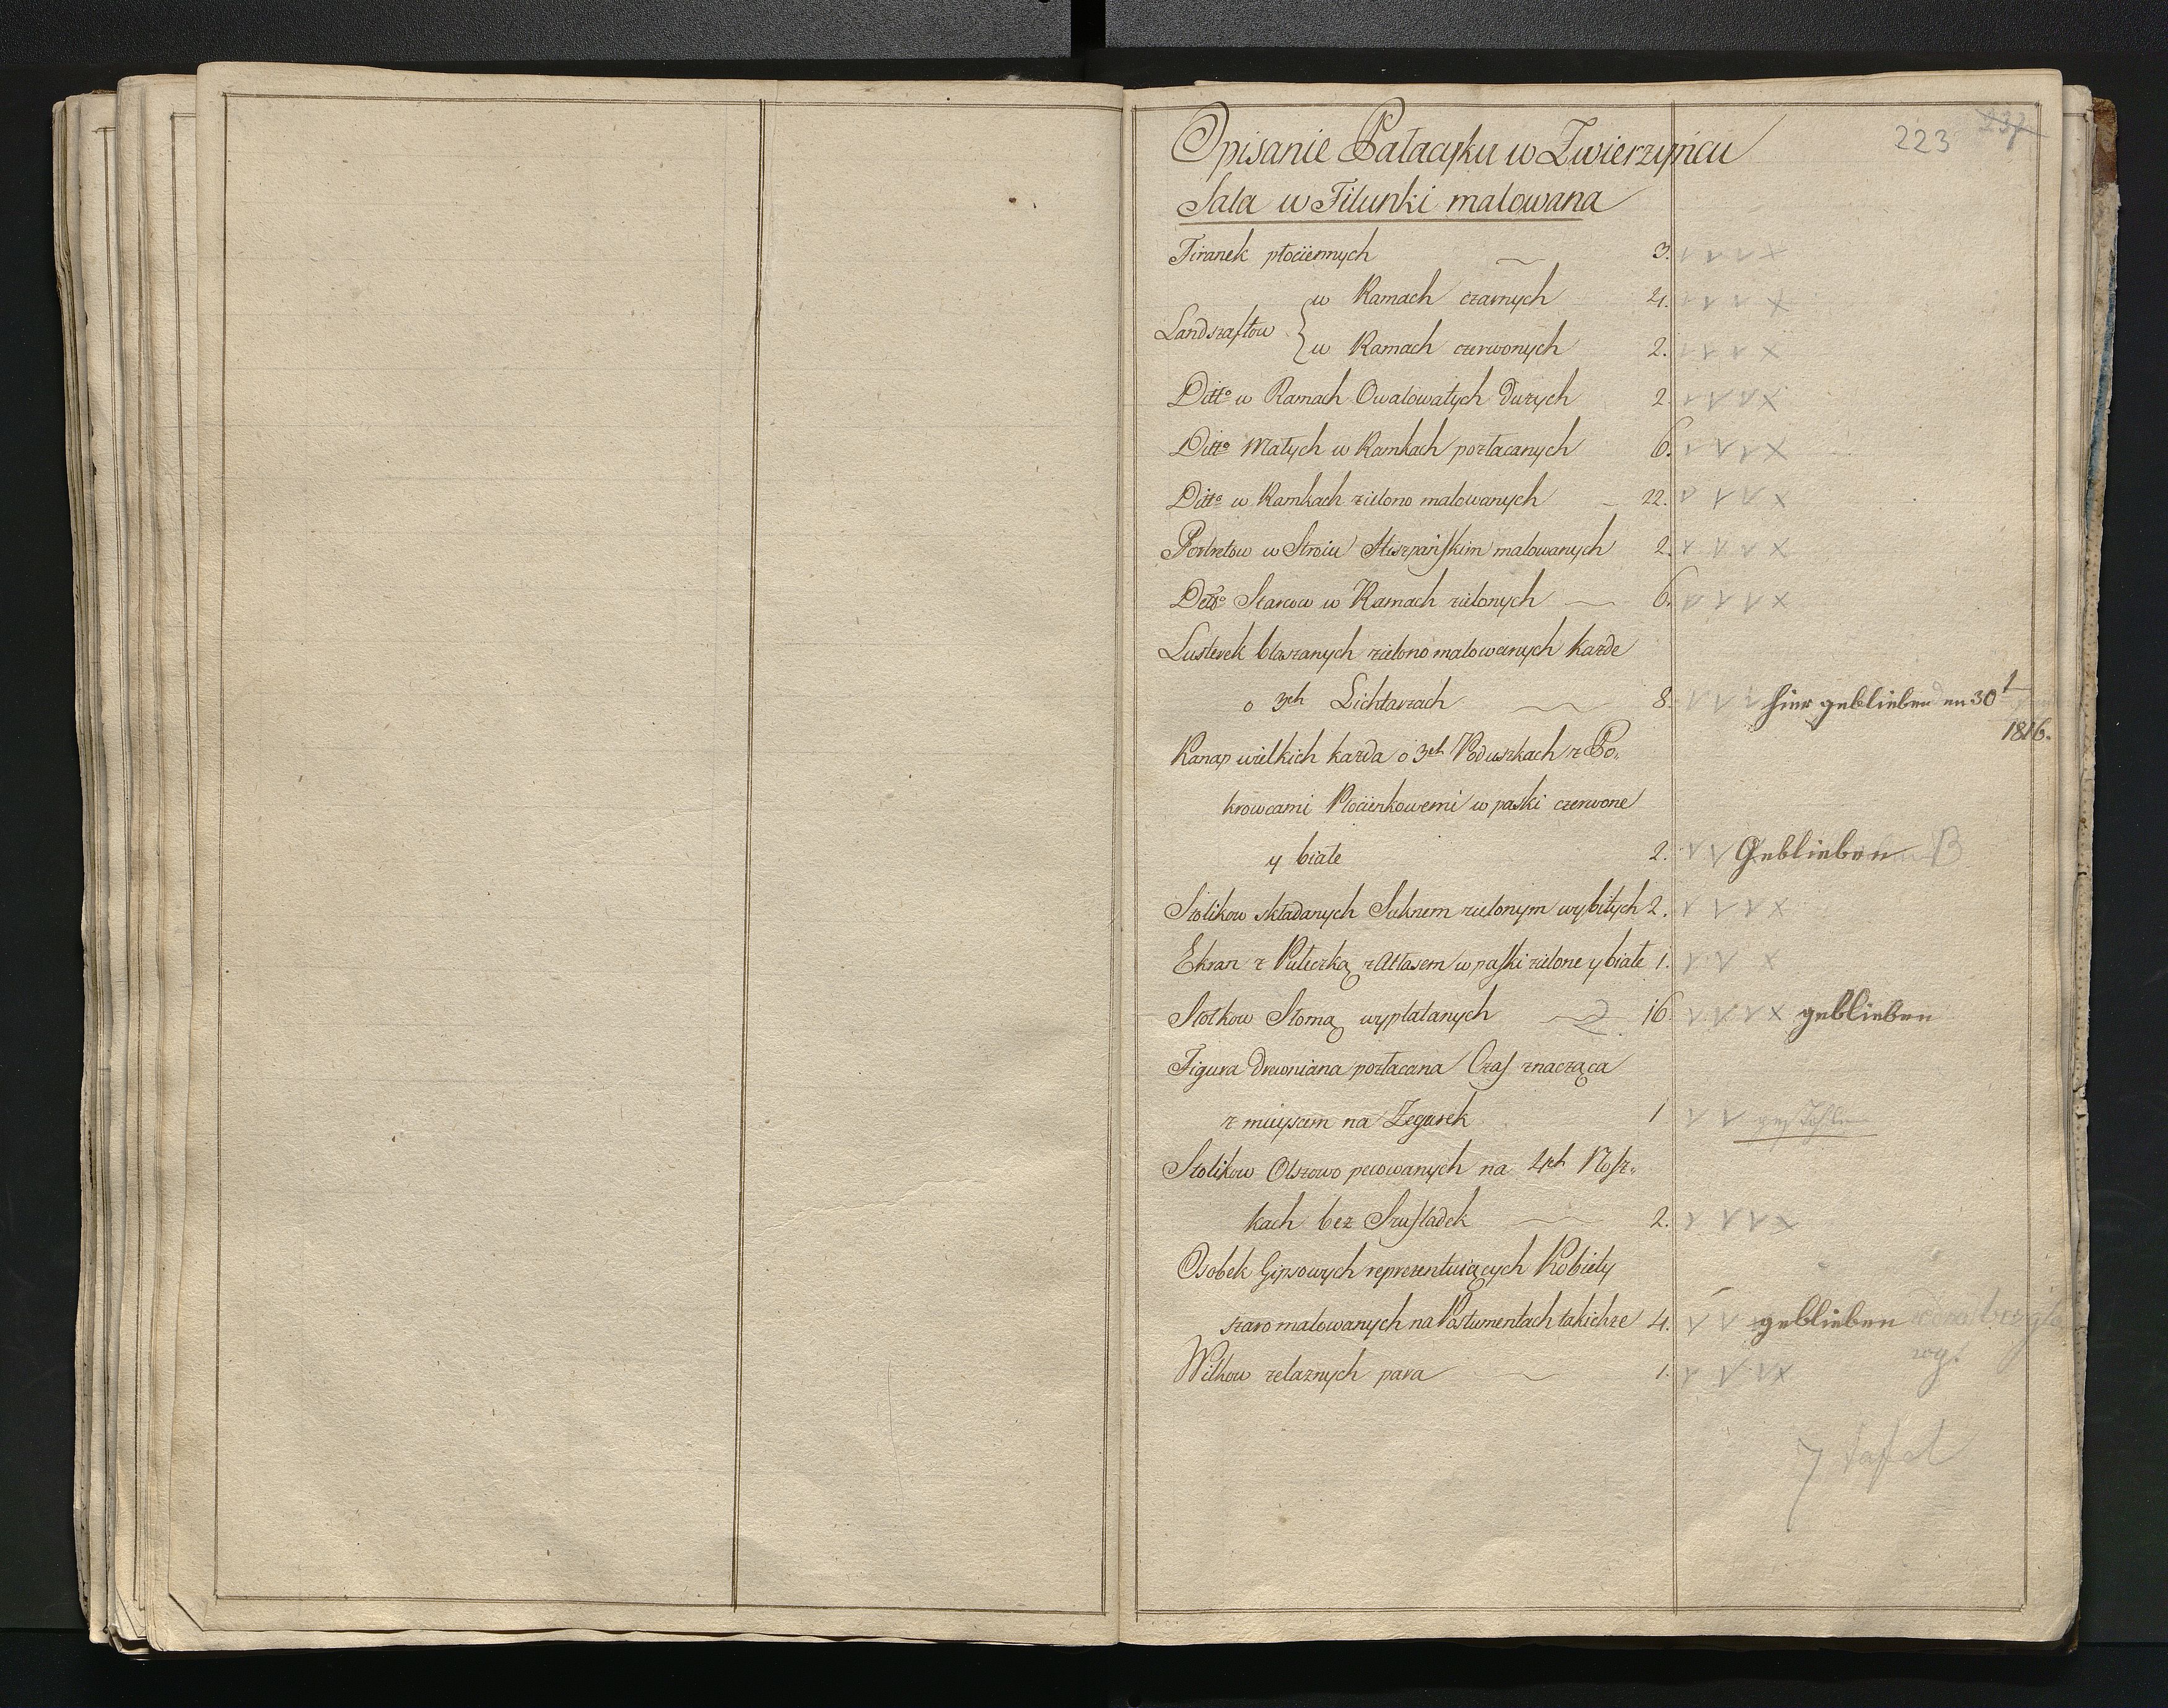 223 237
Opisanie Pałacyku w Zwierzyńcu
Sala w Filunki malowana
Firanek płociennych 3.
Landszaftow { w Ramach czarnych 4.
w Ramach czerwonych 2.
Ditto w Ramach Owalowatych Dużych 2.
Ditto Małych w Ramkach pozłacanych 6.
Ditto w Ramkach zielono malowanych 22.
Portretow w Stroiu Hiszpańskim malowanych 2.
Detto Starcow w Ramach zielonych 6.
Lusterek blaszanych zielono malowanych każde
o 3ch Lichtarzach 8. hier geblieben den 30t
1816.
Kanap wielkich każda o 3ch Poduszkach z Po„
krowcami Płocienkowemi w paski czerwone
y białe 2. Geblieben B
Stolikow składanych Suknem zielonym wybitych 2.
Ekran z Puleczką z Atłasem w paski zielone y białe 1.
Stołkow Słomą wyplatanych 16 geblieben
Figura drewniana pozłacana Czas znacząca
z mieyscem na Zegarek 1
Stolikow Olszowo pecowanych na 4ch Nosz„
kach bez Szufladek 2.
Osobek Gipsowych reprezentuiących Kobiety
szaro malowanych na Postumentach takichże 4. geblieben
Wilkow żelaznych para 1.
7 tafel